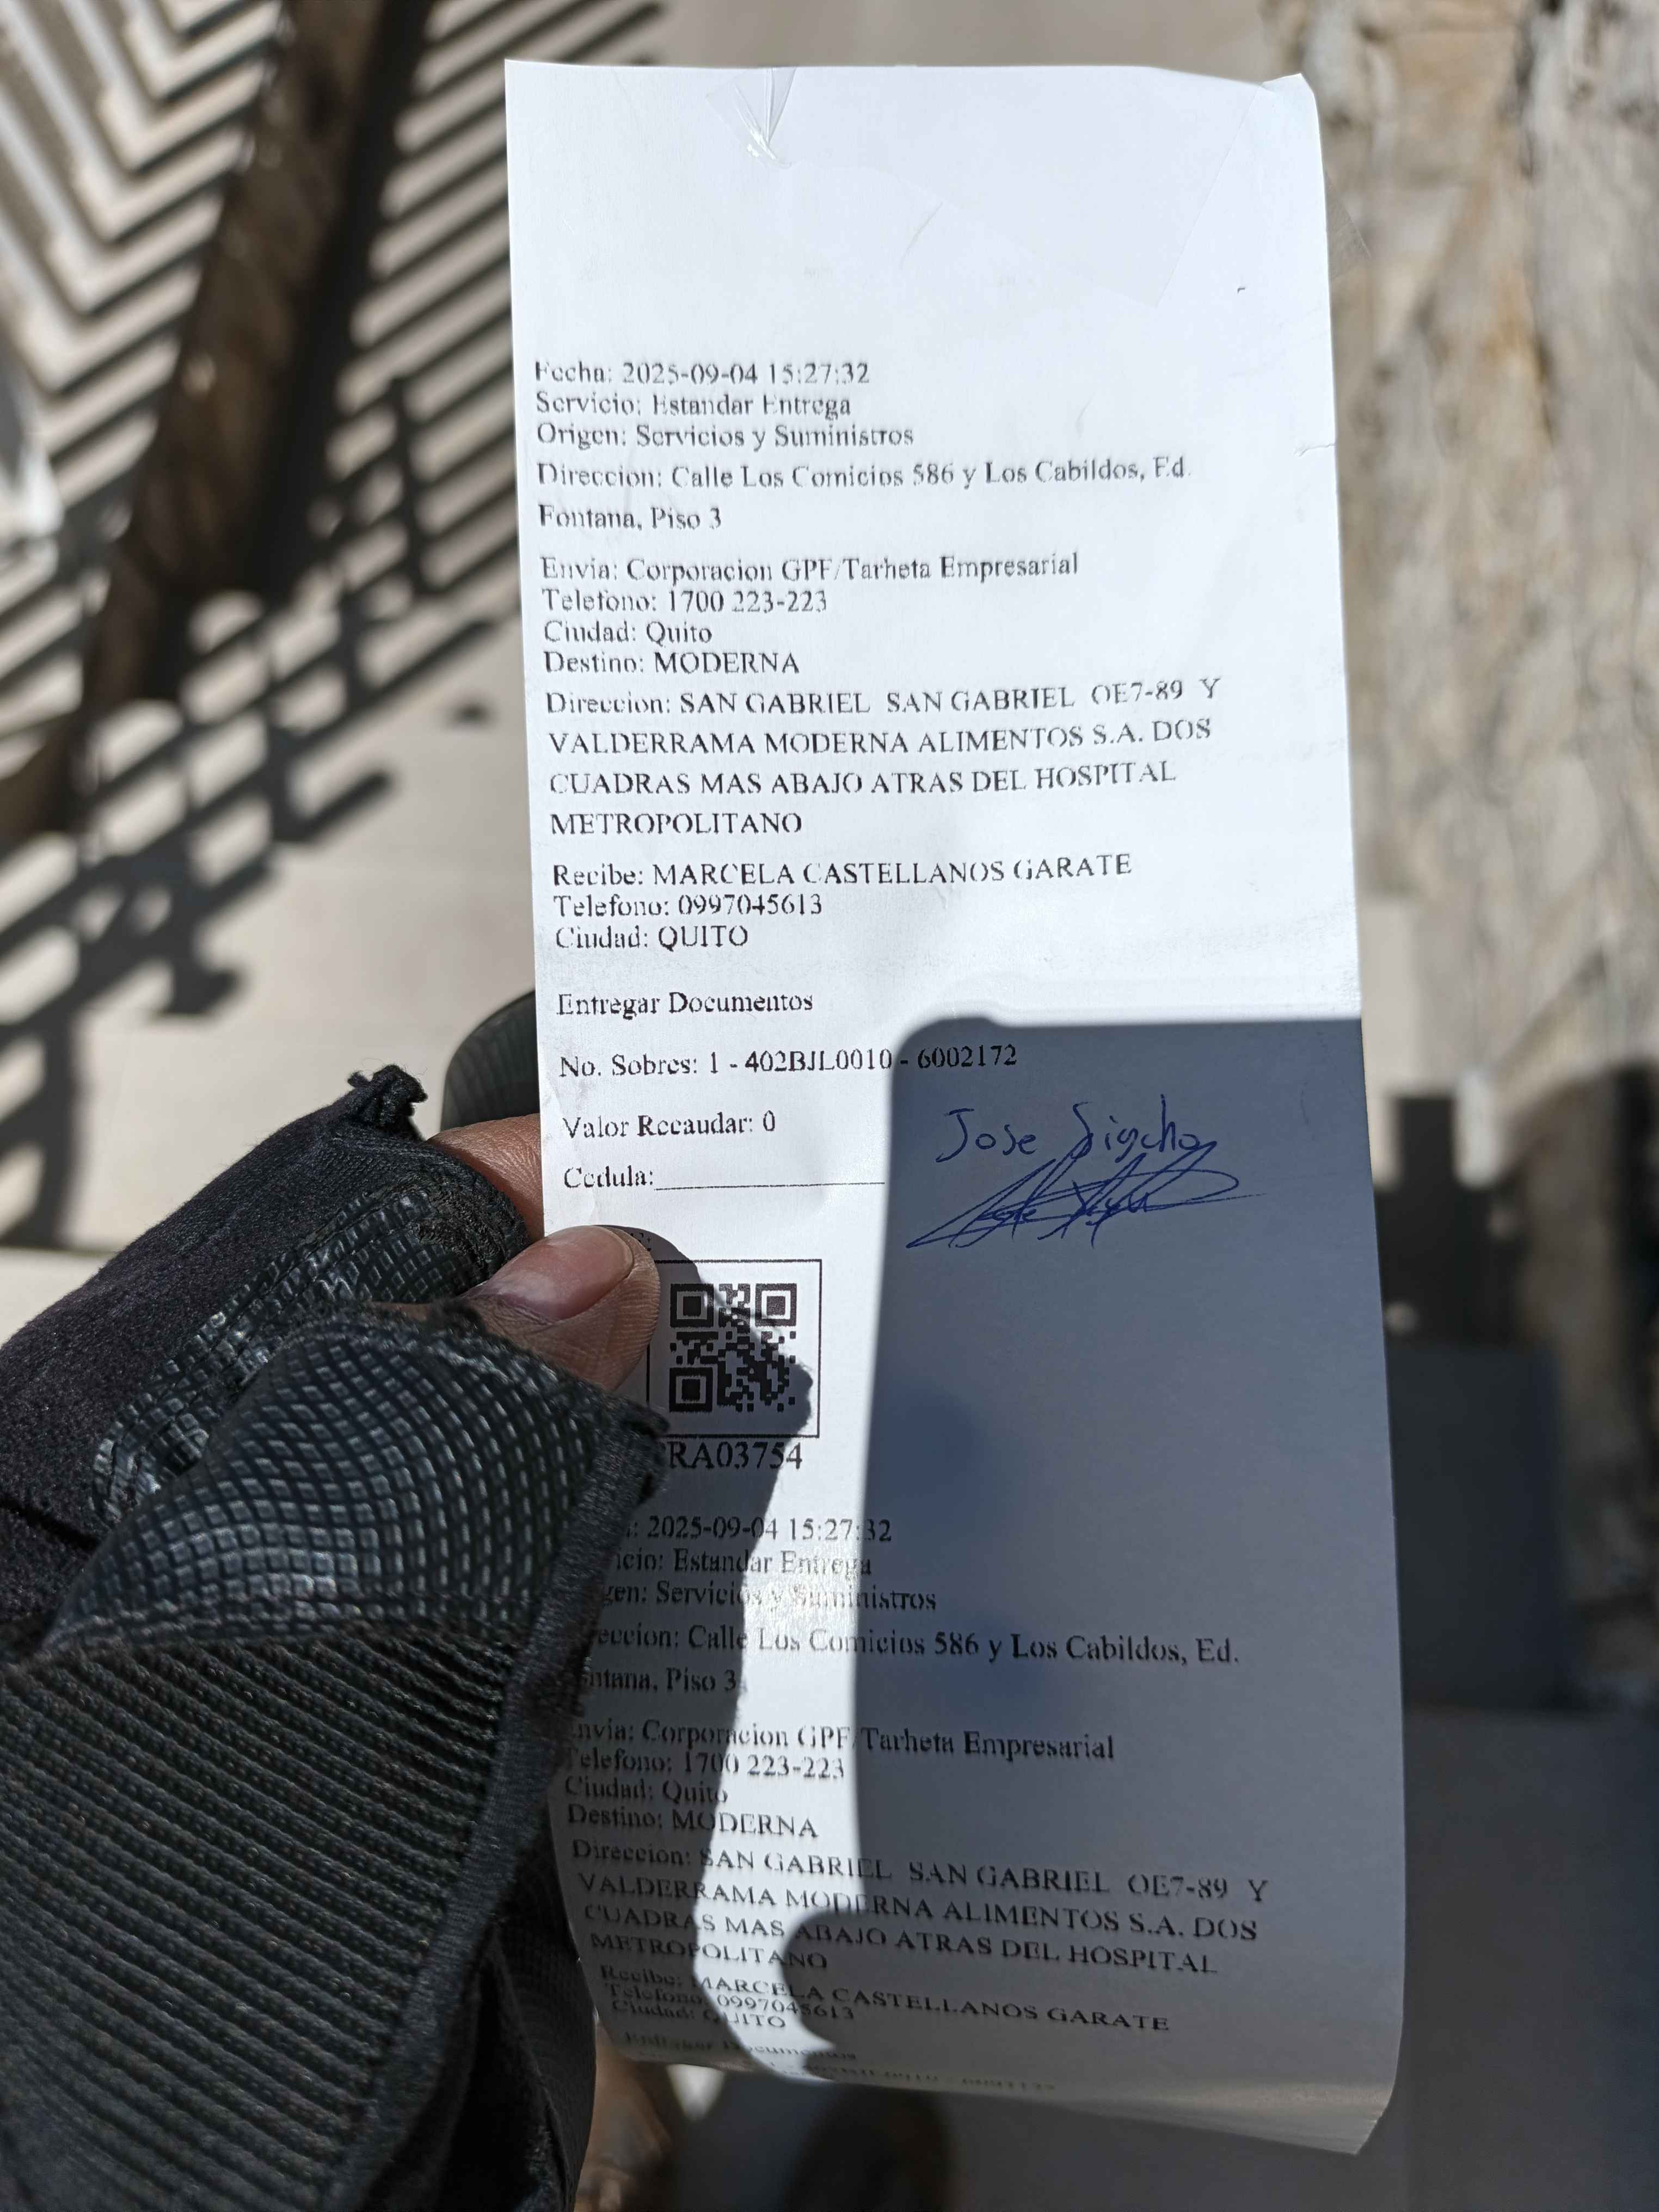 Fecha: 2025-09-04 15:27:32
Servicio: Estandar Entrega
Origen: Servicios y Suministros
Direccion: Calle Los Comicios 586 y Los Cabildos, Ed.
Fontana, Piso 3
Envia: Corporacion GPF/Tarheta Empresarial
Telefono: 1700 223-223
Ciudad: Quito
Destino: MODERNA
Direccion: SAN GABRIEL SAN GABRIEL OE7-89 Y
VALDERRAMA MODERNA ALIMENTOS S.A. DOS
CUADRAS MAS ABAJO ATRAS DEL HOSPITAL
METROPOLITANO
Recibe: MARCELA CASTELLANOS GARATE
Telefono: 0997045613
Ciudad: QUITO
Entregar Documentos
No. Sobres: 1 - 402BJL0010 - 6002172
Jose Sigcho
Valor Recaudar: 0
Cedula:
RA03754
: 2025-09-04 15:27:32
icio: Estandar Entrega
gen: Servicios y Suministros
eccion: Calle Los Comicios 586 y Los Cabildos, Ed.
ntana, Piso 3
nvia: Corporacion GPF/Tarheta Empresarial
Telefono: 1700 223-223
Ciudad: Quito
Destino: MODERNA
Direccion: SAN GABRIEL SAN GABRIEL OE7-89 Y
VALDERRAMA MODERNA ALIMENTOS S.A. DOS
CUADRAS MAS ABAJO ATRAS DEL HOSPITAL
METROPOLITANO
Recibe: MARCELA CASTELLANOS GARATE
Telefono: 0997045613
Ciudad: QUITO
Entregar Documentos